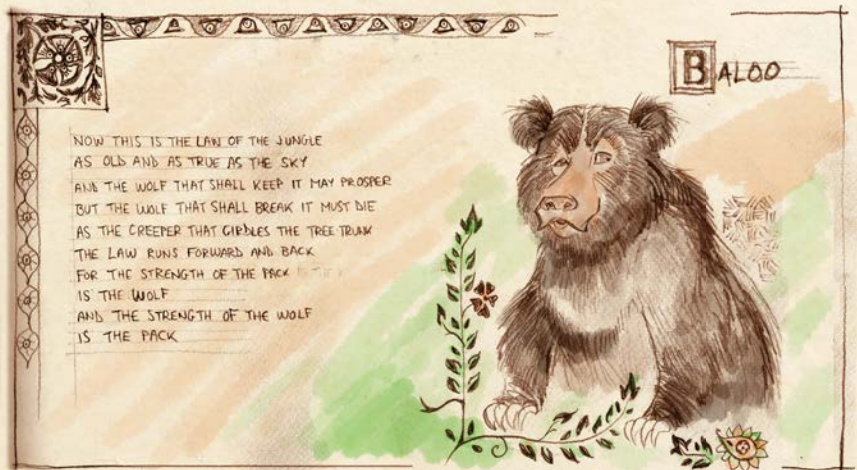 BALOO
NOW THIS IS THE LAW OF THE JUNGLE
AS OLD AND AS TRUE AS THE SKY
AND THE WOLF THAT SHALL KEEP IT MAY PROSPER
BUT THE WOLF THAT SHALL BREAK IT MUST DIE
AS THE CREEPER THAT GIRDLES THE TREE TRUNK
THE LAW RUNS FORWARD AND BACK
FOR THE STRENGTH OF THE PACK
IS THE WOLF
AND THE STRENGTH OF THE WOLF
IS THE PACK